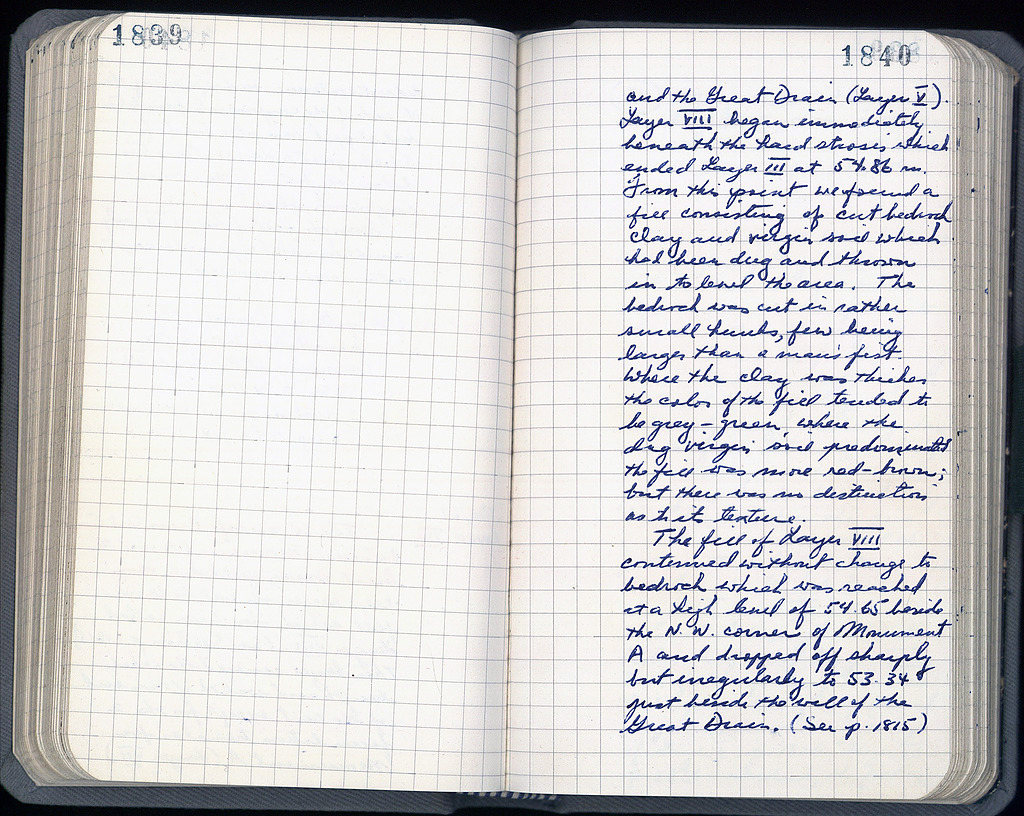 1839
1840
and the Great Drain (Layer V).
Layer VIII began immediately
beneath the hard strosis which
ended Layer III at 54.86 m.
From this point we found a
fill consisting of cut bedrock
clay and virgin soil which
had been dug and thrown
in to level the area. The
bedrock was cut in rather
small hunks, few being
larger than a man's fist.
Where the clay was thicker
the color of the fill tended to
be grey-green, where the
dug virgin soil predominated
the fill was more red-brown;
but there was no distinction
as to its texture.
The fill of Layer VIII
continued without change to
bedrock which was reached
at a high level of 54.65 beside
the N.W. corner of Monument
A and dropped off sharply
but irregularly to 53.34
just beside the wall of the
Great Drain. (See p. 1815)